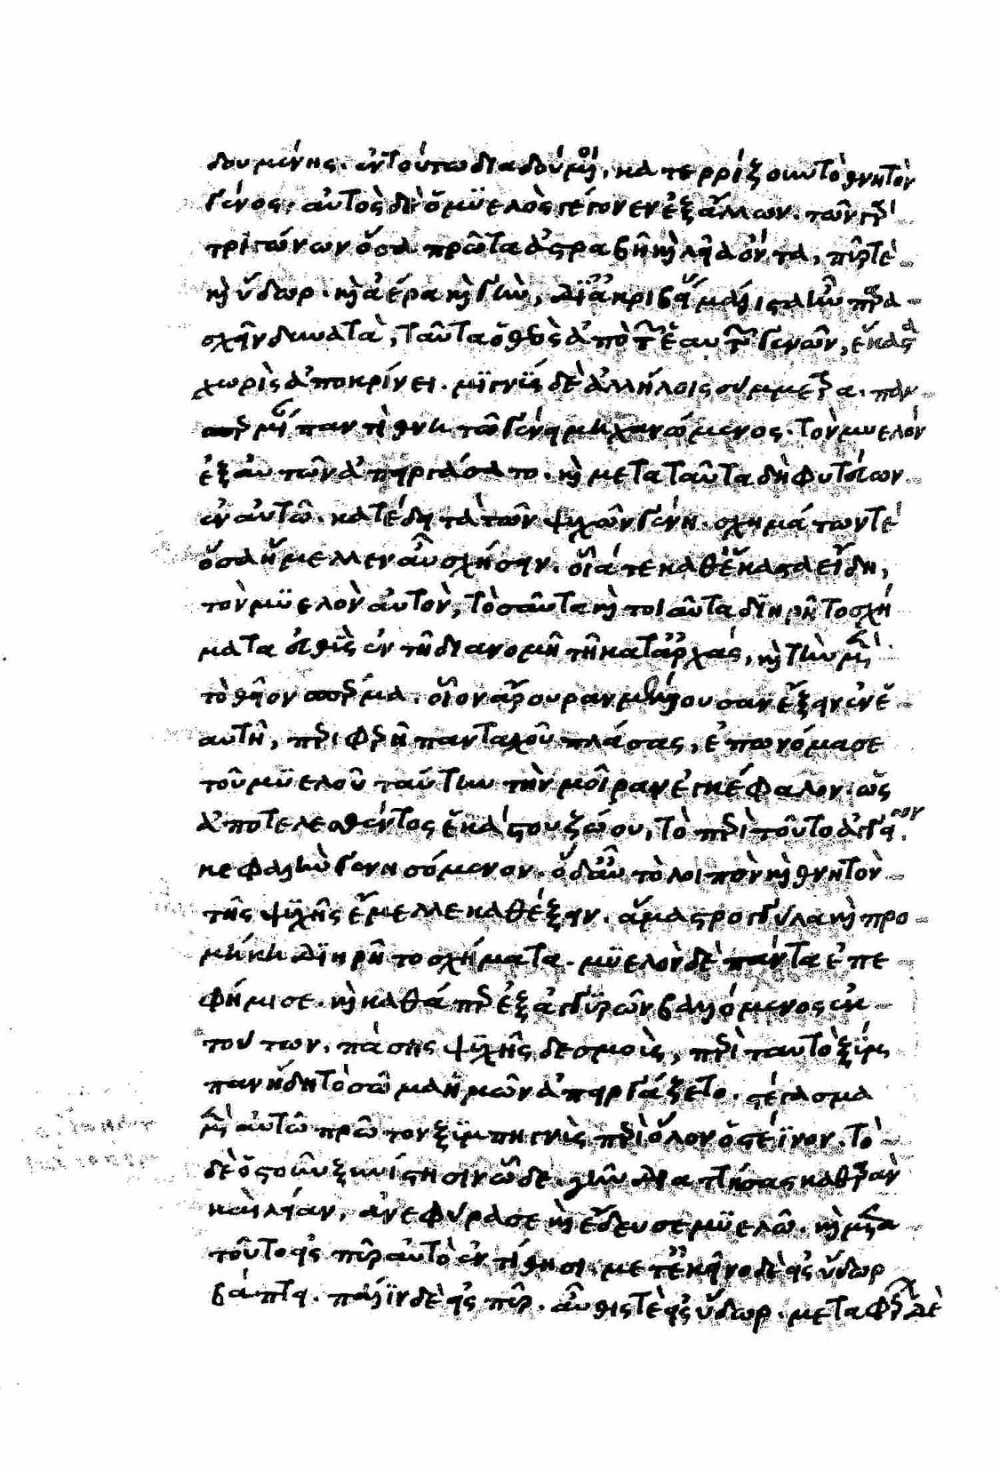 δουμένης. ἐν τούτῳ διαδούμενοι, κατερρίζουν τὸ θνητὸν
γένος. αὐτὸς δὲ ὁ μυελὸς γέγονεν ἐξ ἄλλων. τῶν γὰρ
τριγώνων ὅσα πρῶτα ἀστραβῆ καὶ λεῖα ὄντα, πῦρ τε
καὶ ὕδωρ. καὶ ἀέρα καὶ γῆν, δι' ἀκριβείας μάλιστα ἦν παρα
σχεῖν δυνατὰ, ταῦτα ὁ θεὸς ἀπὸ τῶν ἑαυτῶν γενῶν, ἕκαστα
χωρὶς ἀποκρίνει. μιγνὺς δὲ ἀλλήλοις σύμμετρα. παν
σπερμίαν παντὶ θνητῷ γένει μηχανώμενος. τὸν μυελὸν
ἐξ αὐτῶν ἀπειργάσατο. καὶ μετὰ ταῦτα δὴ φυτεύων
ἐν αὐτῷ. κατέδει τὰ τῶν ψυχῶν γένη. σχημάτων τε
ὅσα ἤμελλεν αὖ σχήσειν. οἷά τε καθ' ἕκαστα εἴδη,
τὸν μυελὸν αὐτὸν, τοσαῦτα καὶ τοιαῦτα διῃρεῖτο σχή
ματα εὐθὺς ἐν τῇ διανομῇ τῇ κατ' ἀρχάς, καὶ τὴν μὲν
τὸ θεῖον σπέρμα. οἷον ἄρουραν μέλλουσαν ἕξειν ἐν ἑ
αυτῇ, περιφερῆ πανταχοῦ πλάσας, ἐπωνόμασε
τοῦ μυελοῦ ταύτην τὴν μοῖραν ἐγκέφαλον. ὡς
ἀποτελεσθέντος ἑκάστου ζῴου, τὸ περὶ τοῦτο ἀγγεῖον
κεφαλὴν γενησόμενον. ὃ δ' αὖ τὸ λοιπὸν καὶ θνητὸν
τῆς ψυχῆς ἔμελλε καθέξειν. ἅμα στρογγύλα καὶ προ
μήκη διῃρεῖτο σχήματα. μυελὸν δὲ πάντα ἐπε
φήμισε. καὶ καθάπερ ἐξ ἀγκυρῶν βαλλόμενος ἐκ
τούτων. πάσης ψυχῆς δεσμοὺς, περὶ ταυτὸ ξύμ
παν ἤδη τὸ σῶμα ἡμῶν ἀπειργάζετο. στέγασμα
μὲν αὐτῷ πρῶτον ξυμπηγνὺς περὶ ὅλον ὀστέϊνον. τὸ
δὲ ὀστοῦν ξυνίστησιν ὧδε. γῆν διαττήσας καθαρὰν
καὶ λείαν, ἀνεφύρασε καὶ ἔδευσε μυελῷ. καὶ μετὰ
τοῦτο εἰς πῦρ αὐτὸ ἐντίθησι. μετ' ἐκεῖνο δὲ εἰς ὕδωρ
βάπτει. πάλιν δὲ εἰς πῦρ. αὖθίς τε εἰς ὕδωρ. μεταφέρων δὲ